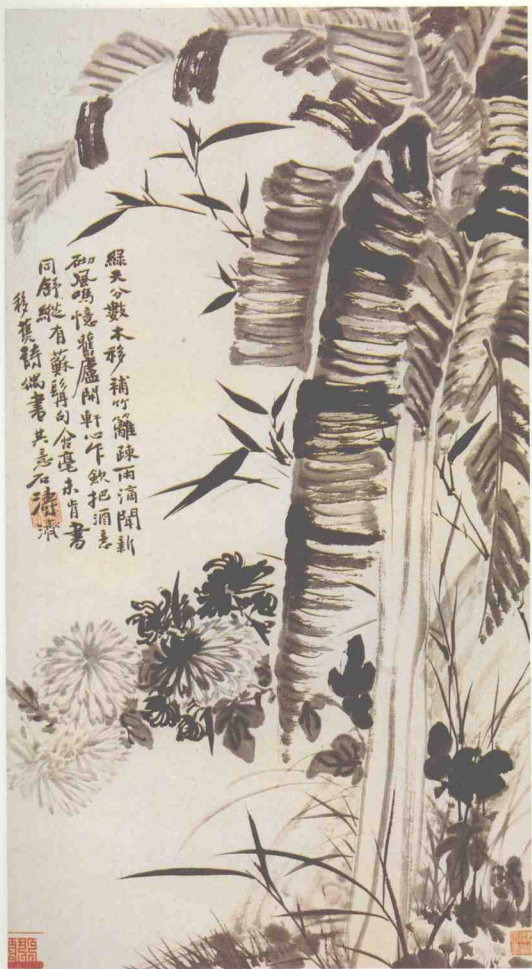 綠天分數本移補竹籬疎雨滴聞新
砌風鳴憶舊廬開軒心乍歛把酒意
同舒縱有蘇髯句含毫未肯書
移蕉詩偶書其意石濤濟